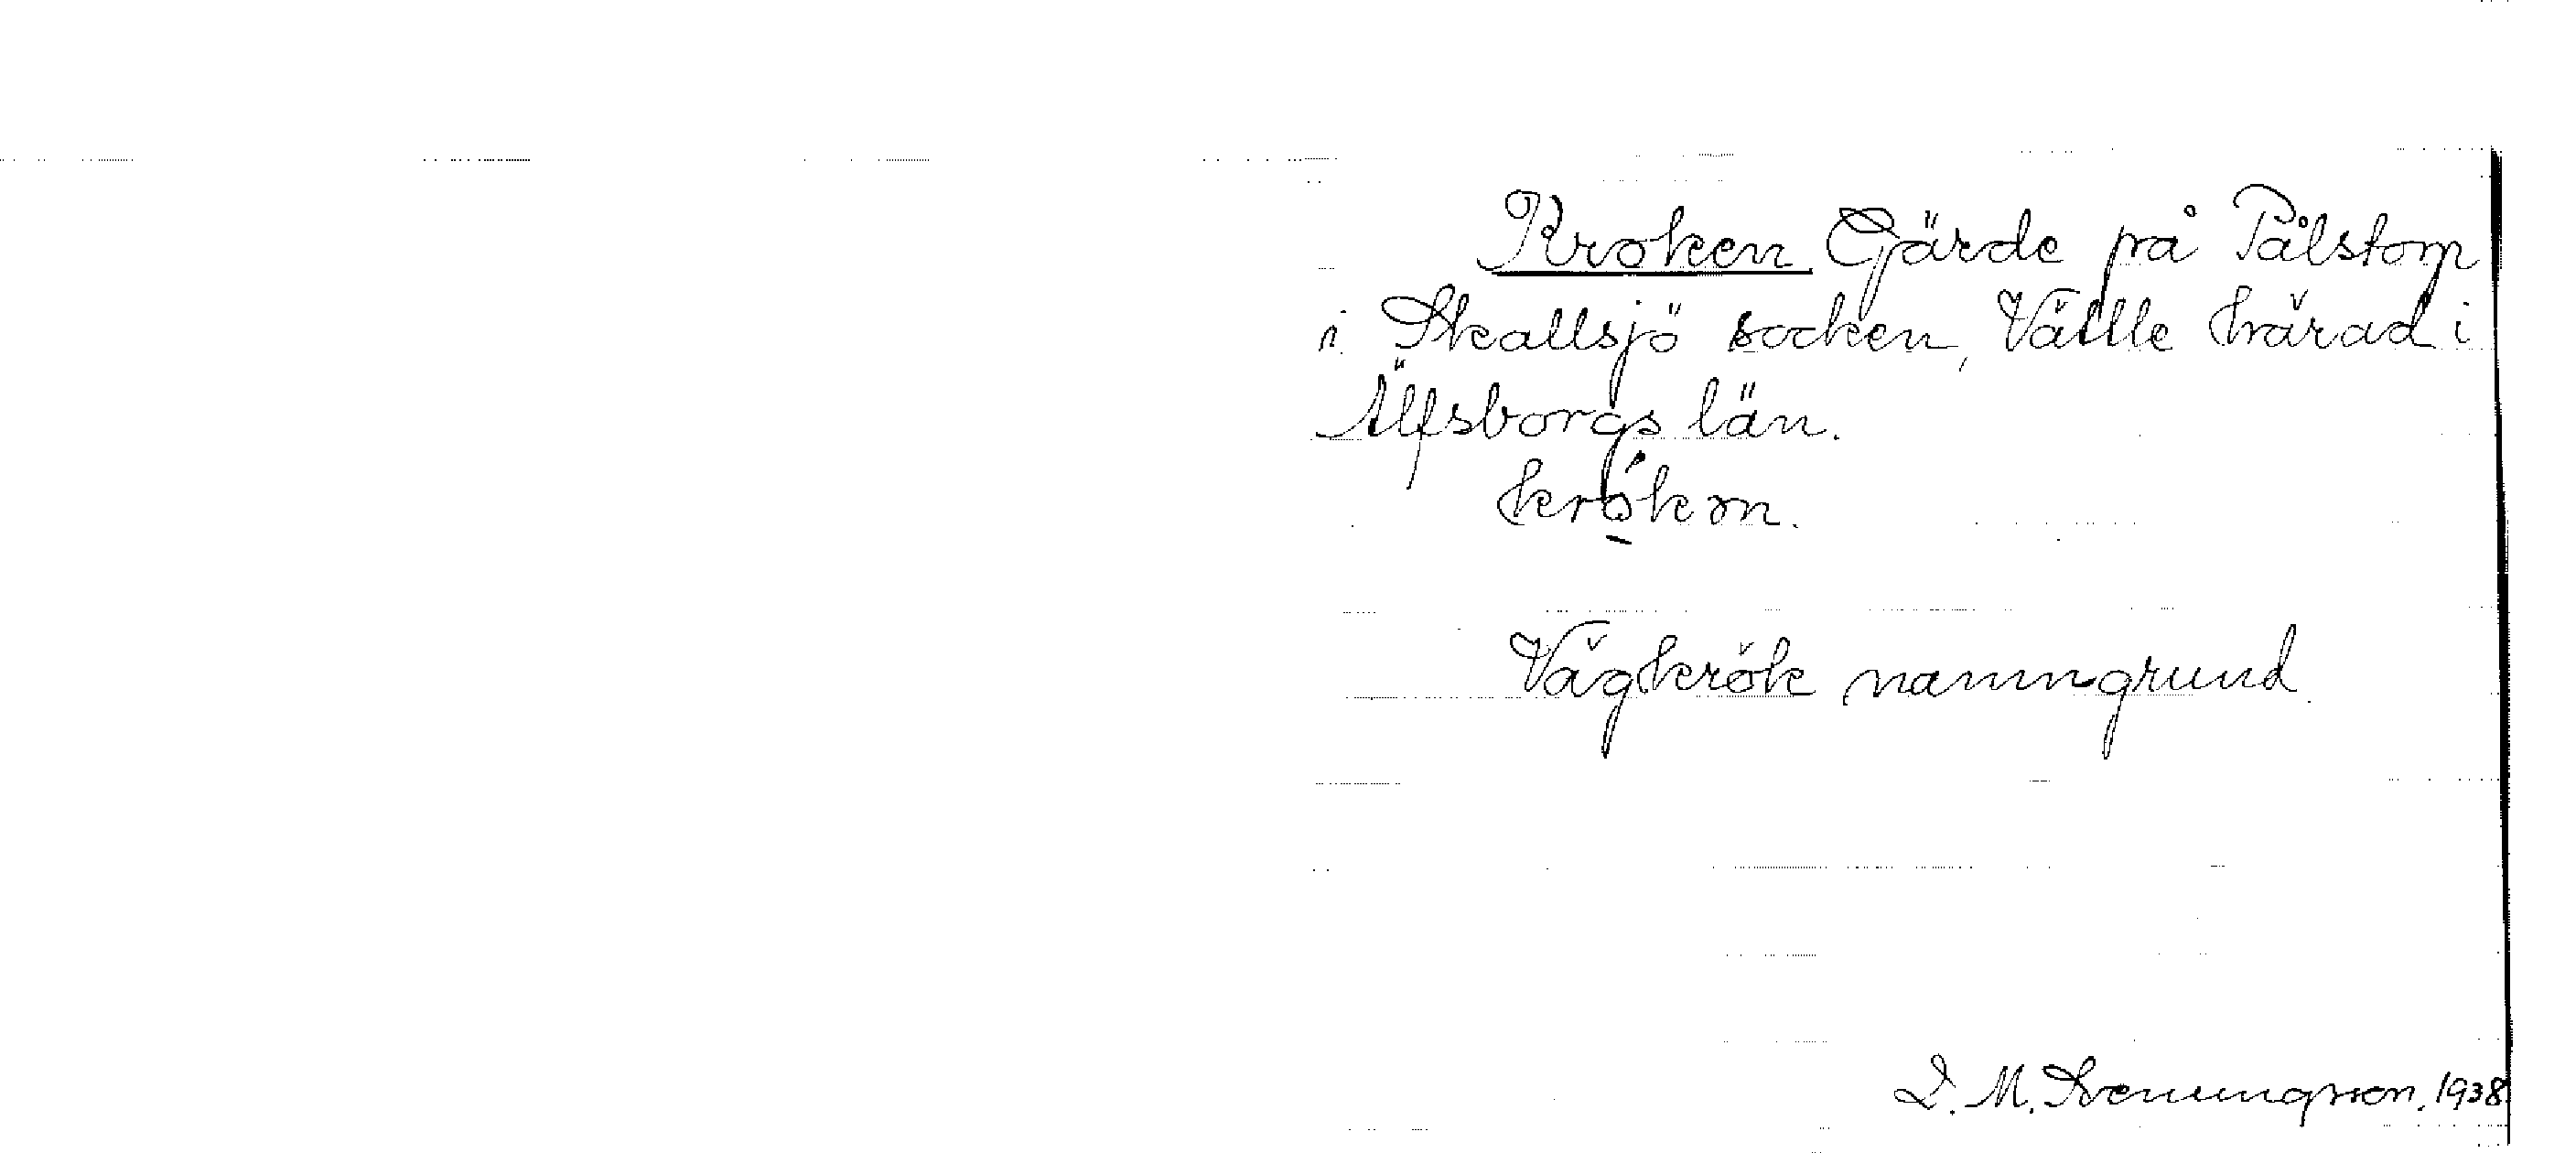 Kroken Gärde på Pålstorp
i Skallsjö socken, Vättle härad i
Älfsborgs län.
krókɷn.
Vägkrök namngrund.
D. M. 1938